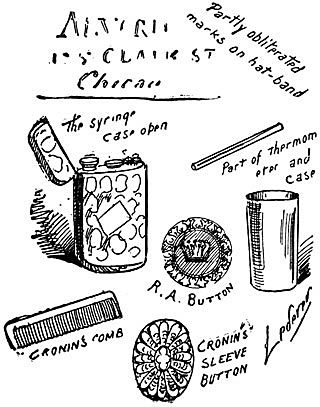 CLARK ST
Partly obliterated
marks on hat-band
The syringe
case open
Part of thermom
eter and
case
R.A. BUTTON
"CRONIN'S COMB
CRONIN'S"
SLEEVE
BUTTON